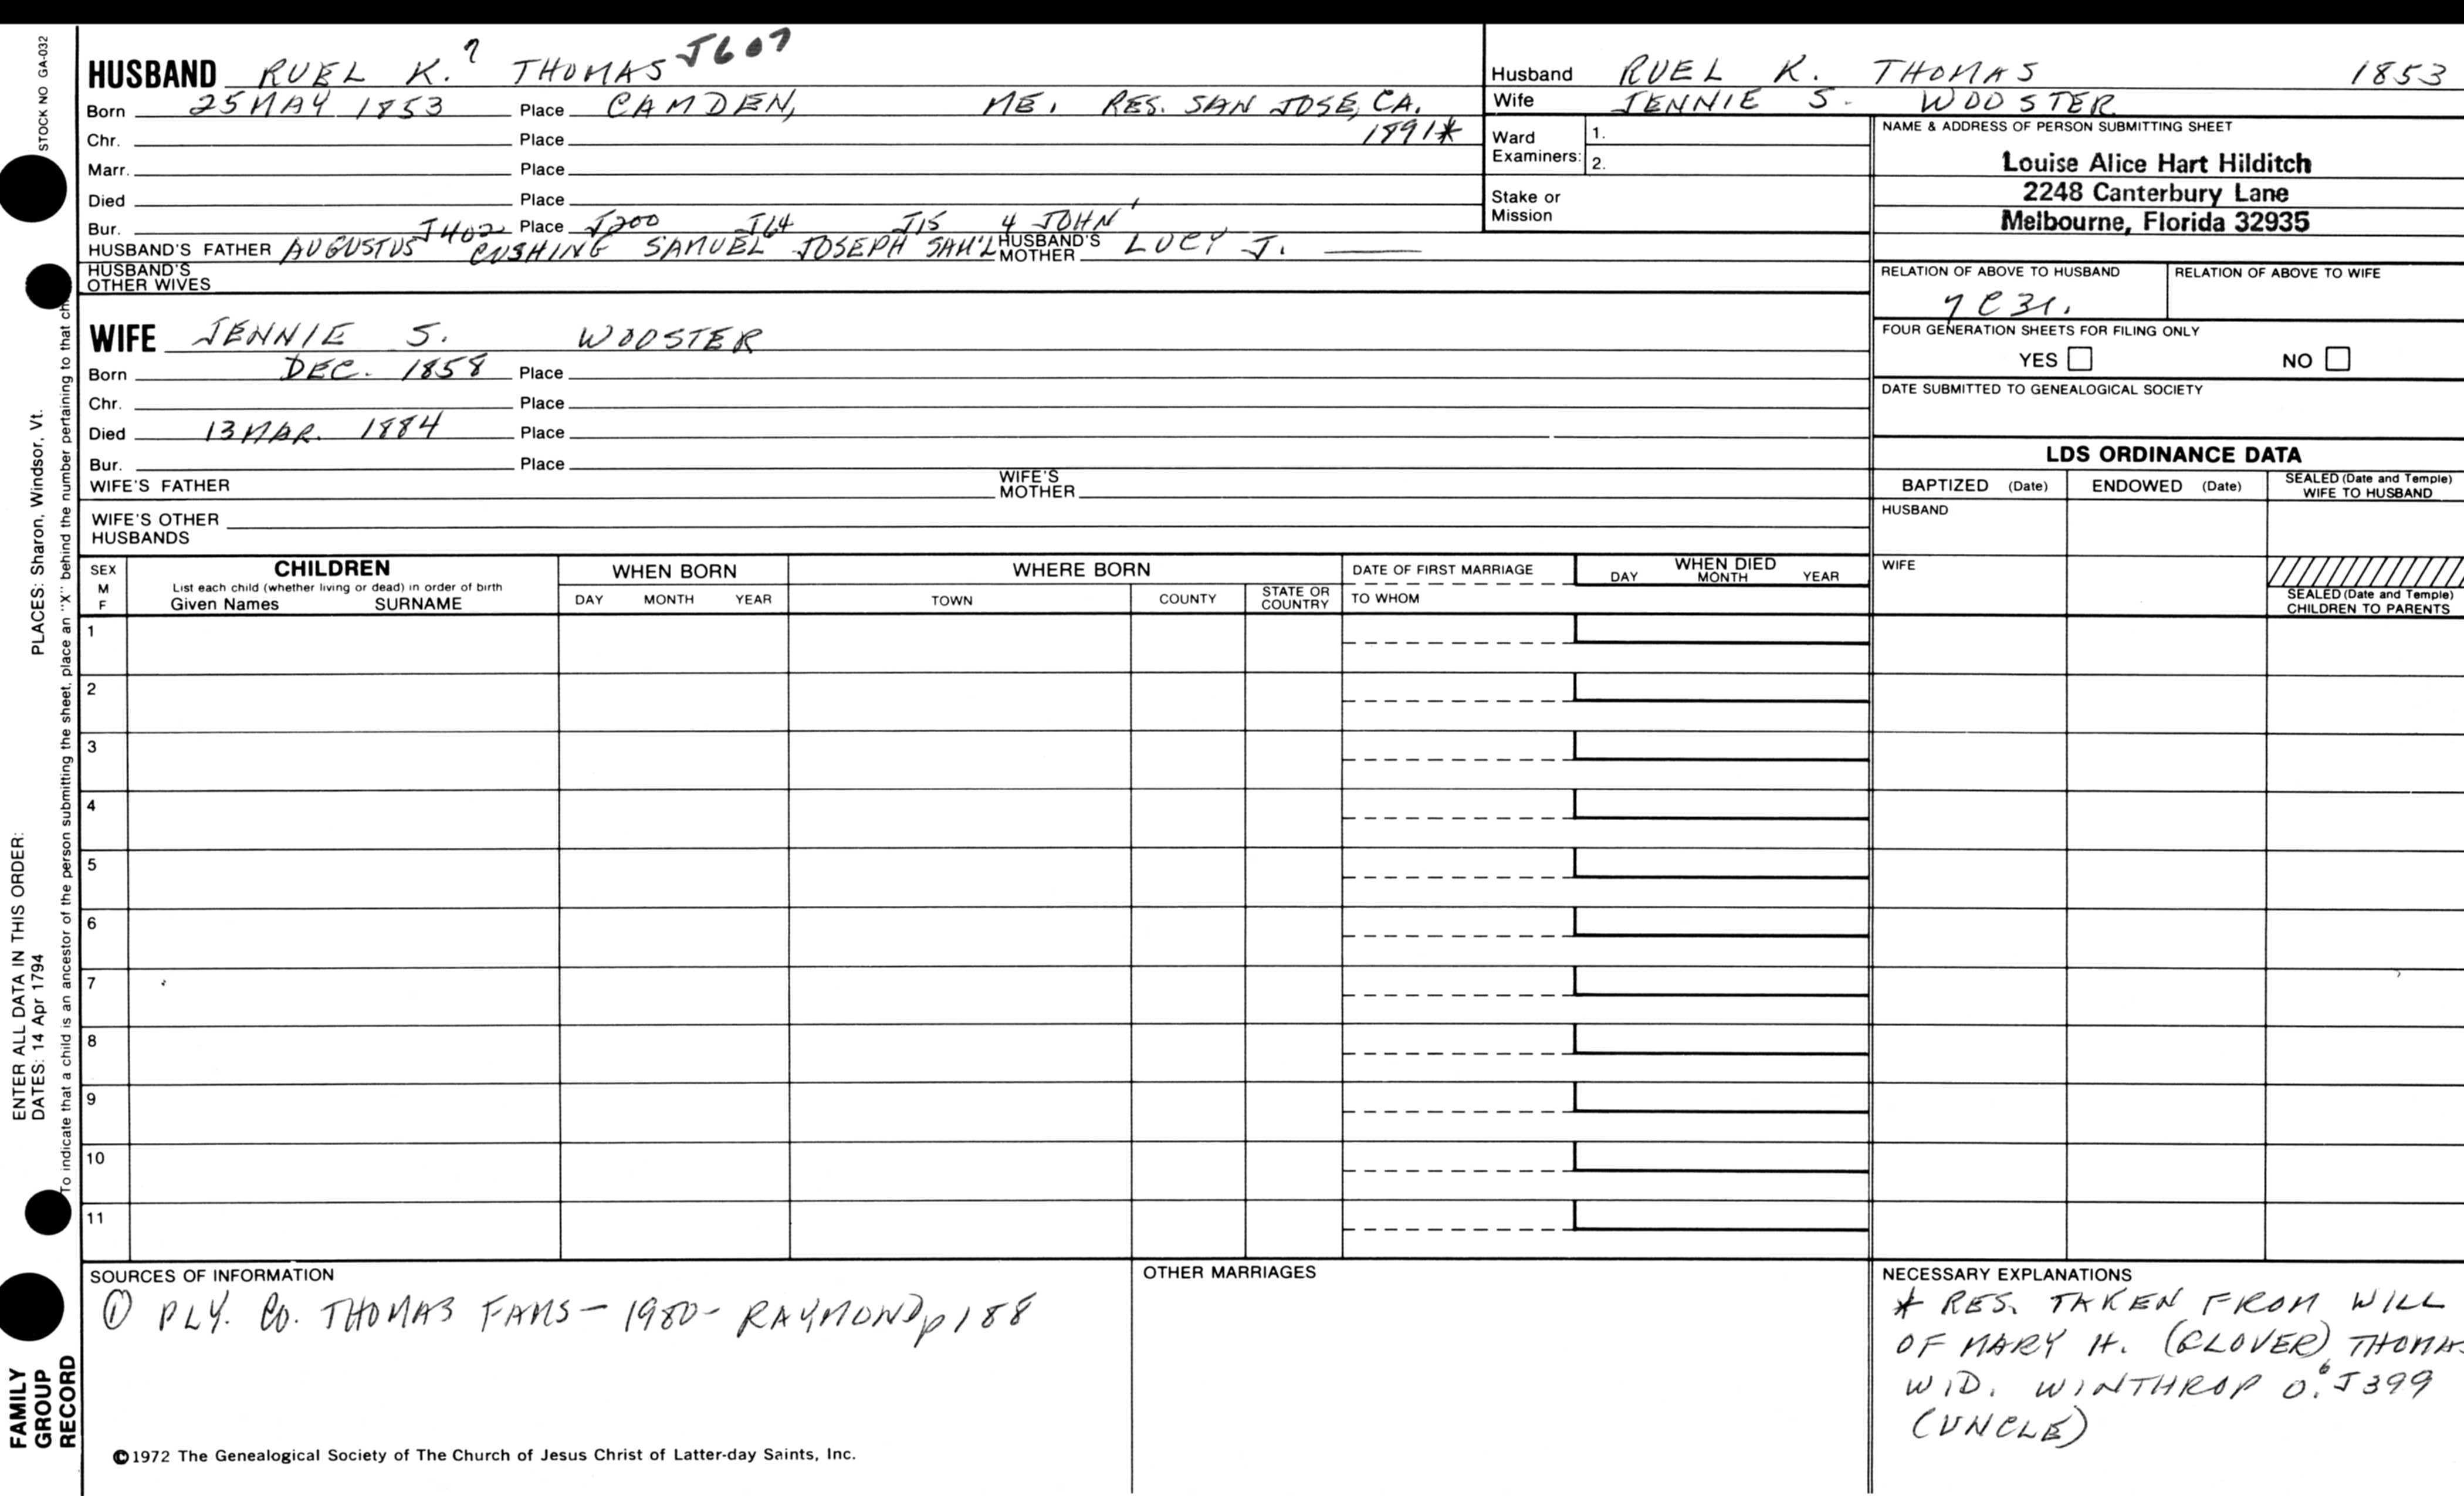 STOCK NO GA-032
HUSBAND RUEL K.7 THOMAS J607
Born 25 MAY 1853 Place CAMDEN, ME. RES. SAN JOSE, CA.
1891*
Chr. Place
Marr. Place
Died Place
Bur. Place
J402 J200 J64 J15 4 JOHN'
HUSBAND'S FATHER AUGUSTUS CUSHING SAMUEL JOSEPH SAM'L HUSBAND'S MOTHER LUCY J. ——
HUSBAND'S
OTHER WIVES
WIFE JENNIE S. WOOSTER
Born DEC. 1858 Place
Chr. Place
Died 13 MAR. 1884 Place
Bur. Place
WIFE'S FATHER WIFE'S MOTHER
WIFE'S OTHER
HUSBANDS
Husband RUEL K. THOMAS 1853
Wife JENNIE S. WOOSTER
Ward
Examiners:
1.
2.
Stake or
Mission
NAME & ADDRESS OF PERSON SUBMITTING SHEET
Louise Alice Hart Hilditch
2248 Canterbury Lane
Melbourne, Florida 32935
RELATION OF ABOVE TO HUSBAND RELATION OF ABOVE TO WIFE
7C3r.
FOUR GENERATION SHEETS FOR FILING ONLY
YES NO
DATE SUBMITTED TO GENEALOGICAL SOCIETY
LDS ORDINANCE DATA
BAPTIZED (Date) ENDOWED (Date) SEALED (Date and Temple)
WIFE TO HUSBAND
HUSBAND
WIFE
SEALED (Date and Temple)
CHILDREN TO PARENTS
SEX
M
F
CHILDREN
List each child (whether living or dead) in order of birth
Given Names SURNAME
WHEN BORN
DAY MONTH YEAR
WHERE BORN
TOWN COUNTY STATE OR
COUNTRY
DATE OF FIRST MARRIAGE
TO WHOM
WHEN DIED
DAY MONTH YEAR
1
2
3
4
5
6
7
8
9
10
11
SOURCES OF INFORMATION
① PLY. CO. THOMAS FAMS - 1980 - RAYMOND p 188
OTHER MARRIAGES
NECESSARY EXPLANATIONS
* RES. TAKEN FROM WILL
OF MARY H. (GLOVER) THOMAS
WID. WINTHROP O.6 J399
(UNCLE)
©1972 The Genealogical Society of The Church of Jesus Christ of Latter-day Saints, Inc.
PLACES: Sharon, Windsor, Vt.
ENTER ALL DATA IN THIS ORDER:
DATES: 14 Apr 1794
To indicate that a child is an ancestor of the person submitting the sheet, place an "X" behind the number pertaining to that
FAMILY
GROUP
RECORD